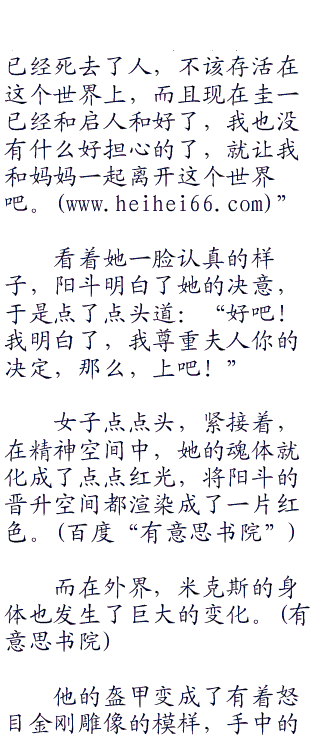 已经死去了人，不该存活在
这个世界上，而且现在圭一
已经和启人和好了，我也没
有什么好担心的了，就让我
和妈妈一起离开这个世界
吧。(www.heihei66.com)”
看着她一脸认真的样
子，阳斗明白了她的决意，
于是点了点头道：“好吧！
我明白了，我尊重夫人你的
决定，那么，上吧！”
女子点点头，紧接着，
在精神空间中，她的魂体就
化成了点点红光，将阳斗的
晋升空间都渲染成了一片红
色。(百度“有意思书院”)
而在外界，米克斯的身
体也发生了巨大的变化。(有
意思书院)
他的盔甲变成了有着怒
目金刚雕像的模样，手中的